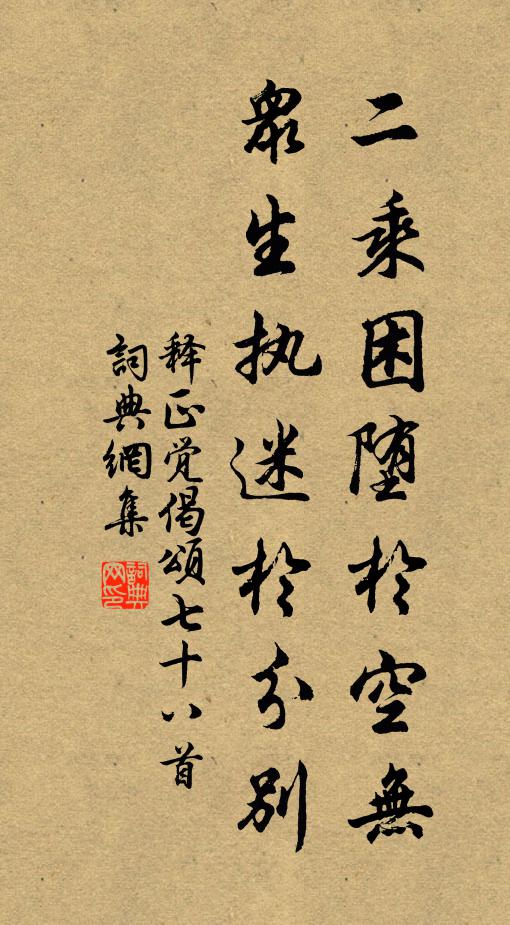 二乘困堕於空無
眾生执迷於分別
释正觉偈頌七十八首
詞典網集
詞典
网印